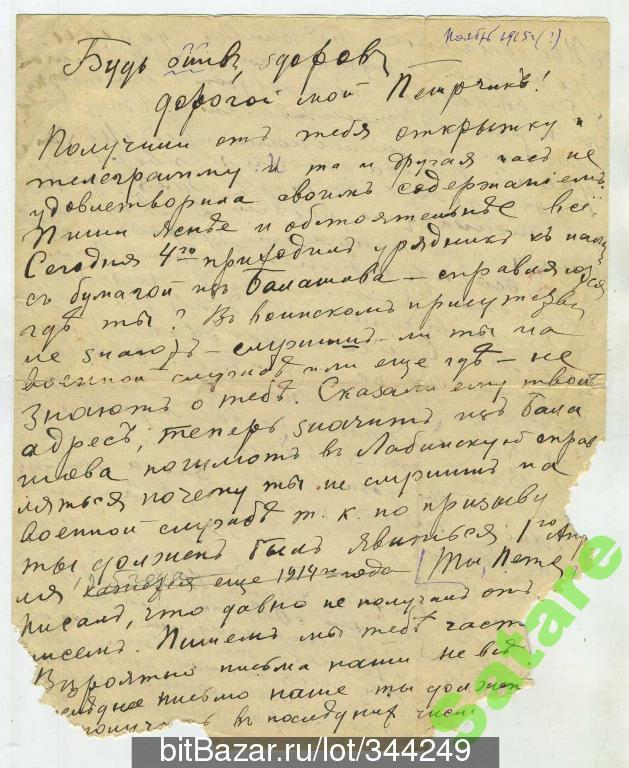 Ноябрь 1915 г (?)
Будь здоровъ,
дорогой мой Петрчикъ!
Получили отъ тебя открытку и
телеграмму и та и другая насъ не
удовлетворила своимъ содержаніемъ.
Пиши яснѣе и обстоятельнѣе всё.
Сегодня 4го приходилъ урядникъ къ намъ
съ бумагой изъ Балашова – справляюся
гдѣ ты? Въ воинскомъ присутствіи
не знаютъ – служишь ли ты на
военной службѣ или еще гдѣ – не
знаютъ о тебѣ. Сказали ему твой
адресъ, теперь значитъ изъ Бала
шова пошлютъ въ Лабинскую справ
ляться почему ты не служишь на
военной службѣ т. к. по призыву
ты долженъ былъ явиться 1го Апр
ля еще 1914го года Ты, Петя
писалъ, что давно не получалъ отъ
писемъ. Пишемъ мы тебѣ част
Вѣроятно письма наши не всѣ
письмо наше ты долженъ
въ последнихъ числ
satare
bitBazar.ru/lot/344249